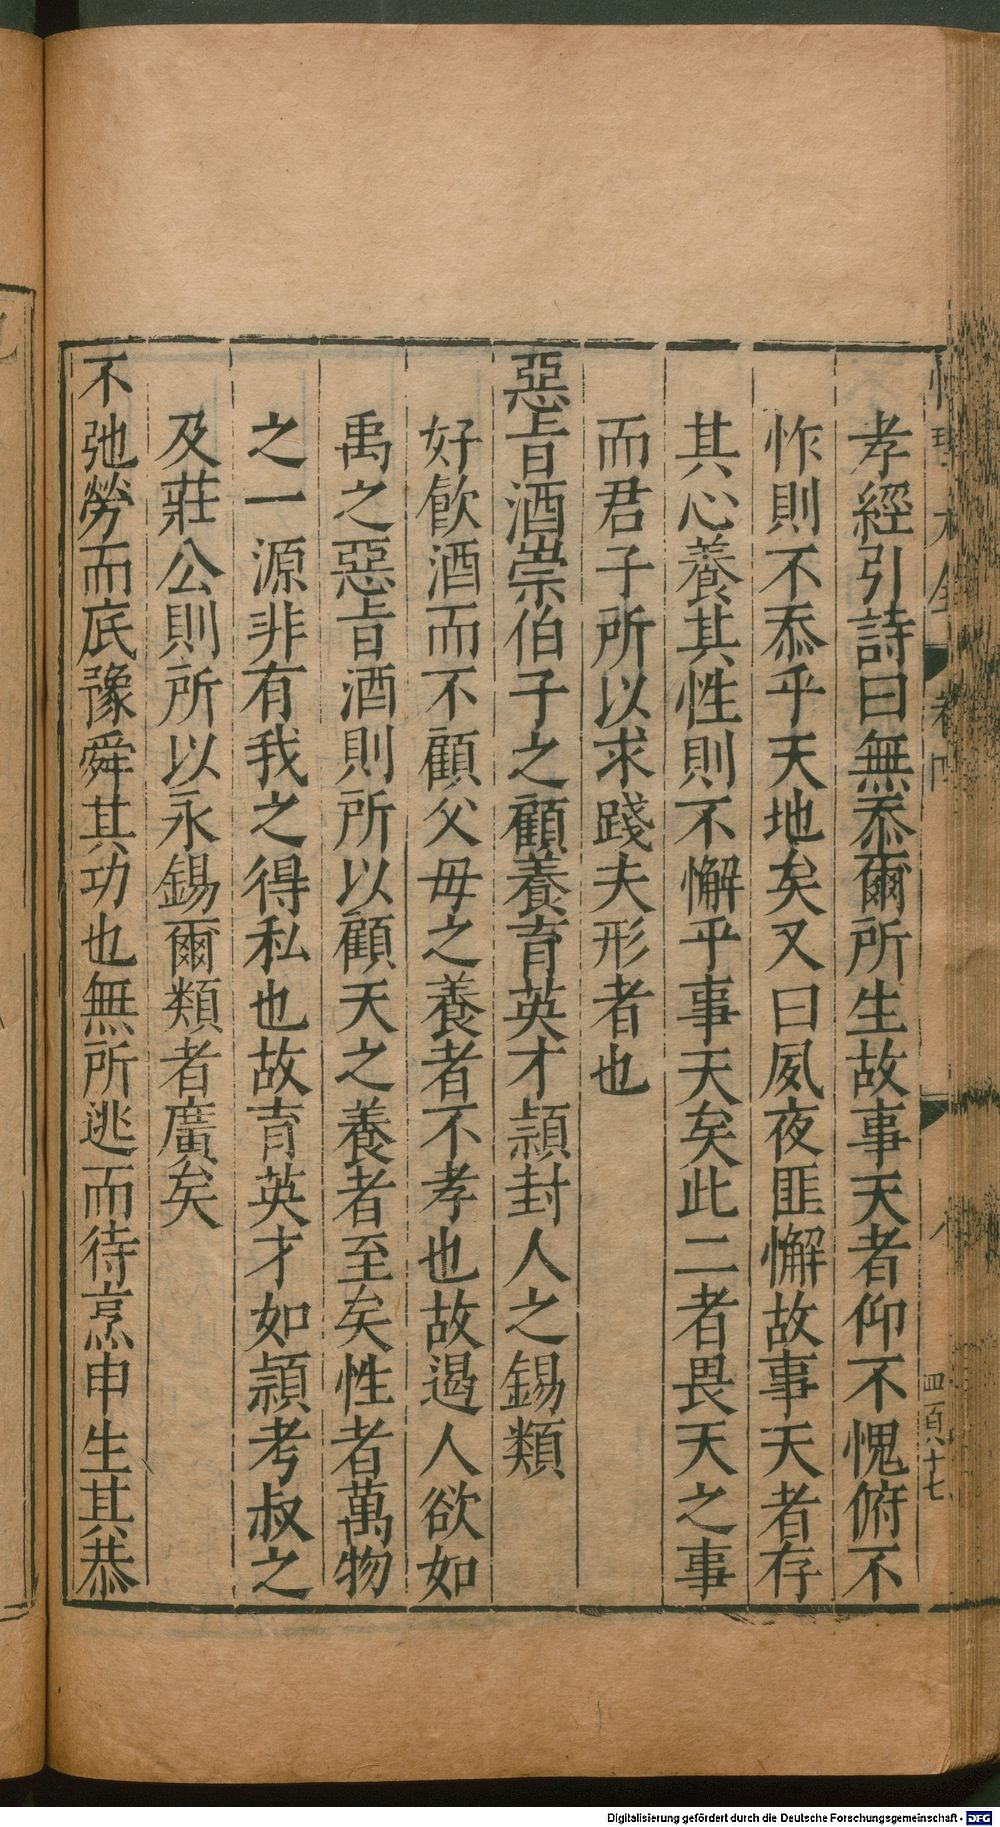 孝經引詩曰無忝爾所生故事天者仰不愧俯不
怍則不忝乎天地矣又曰夙夜匪懈故事天者存
其心養其性則不懈乎事天矣此二者畏天之事
而君子所以求踐夫形者也
惡旨酒崇伯子之顧養育英才頴封人之錫類
好飲酒而不顧父母之養者不孝也故遏人欲如
禹之惡旨酒則所以顧天之養者至矣性者萬物
之一源非有我之得私也故育英才如頴考叔之
及莊公則所以永錫爾類者廣矣
不弛勞而底豫舜其功也無所逃而待烹申生其恭
四頁十七
Digitalisierung gefördert durch die Deutsche Forschungsgemeinschaft - DFG